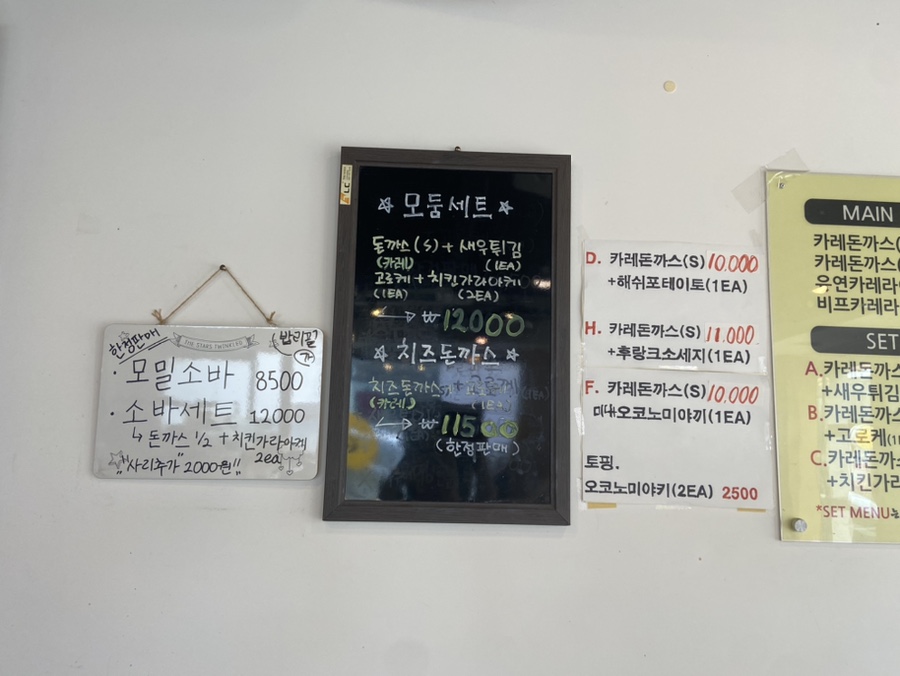 한정판매
THE STARS TWINKLED
(밥리필 가)
· 모밀소바 8500
· 소바세트 12000
↳ 돈까스 1/2 + 치킨가라아게 2ea
"사리추가" 2000원!!
☆ 모둠세트 ☆
돈까스(S) + 새우튀김
(카레) (1EA)
고로케 + 치킨가라아게
(1EA) (2EA)
₩12000
☆ 치즈돈까스 ☆
치즈돈까스 + 고로케
(카레) (1EA)
₩11500
(한정판매)
D. 카레돈까스(S) 10.000
+해쉬포테이토(1EA)
H. 카레돈까스(S) 11.000
+후랑크소세지(1EA)
F. 카레돈까스(S) 10,000
미니오코노미야끼(1EA)
토핑.
오코노미야키(2EA) 2500
MAIN
카레돈까스(
카레돈까스(
우연카레라
비프카레라
SET
A.카레돈까스
+새우튀김
B.카레돈까스
+고로케(1
C.카레돈까스
+치킨가라
*SET MENU는